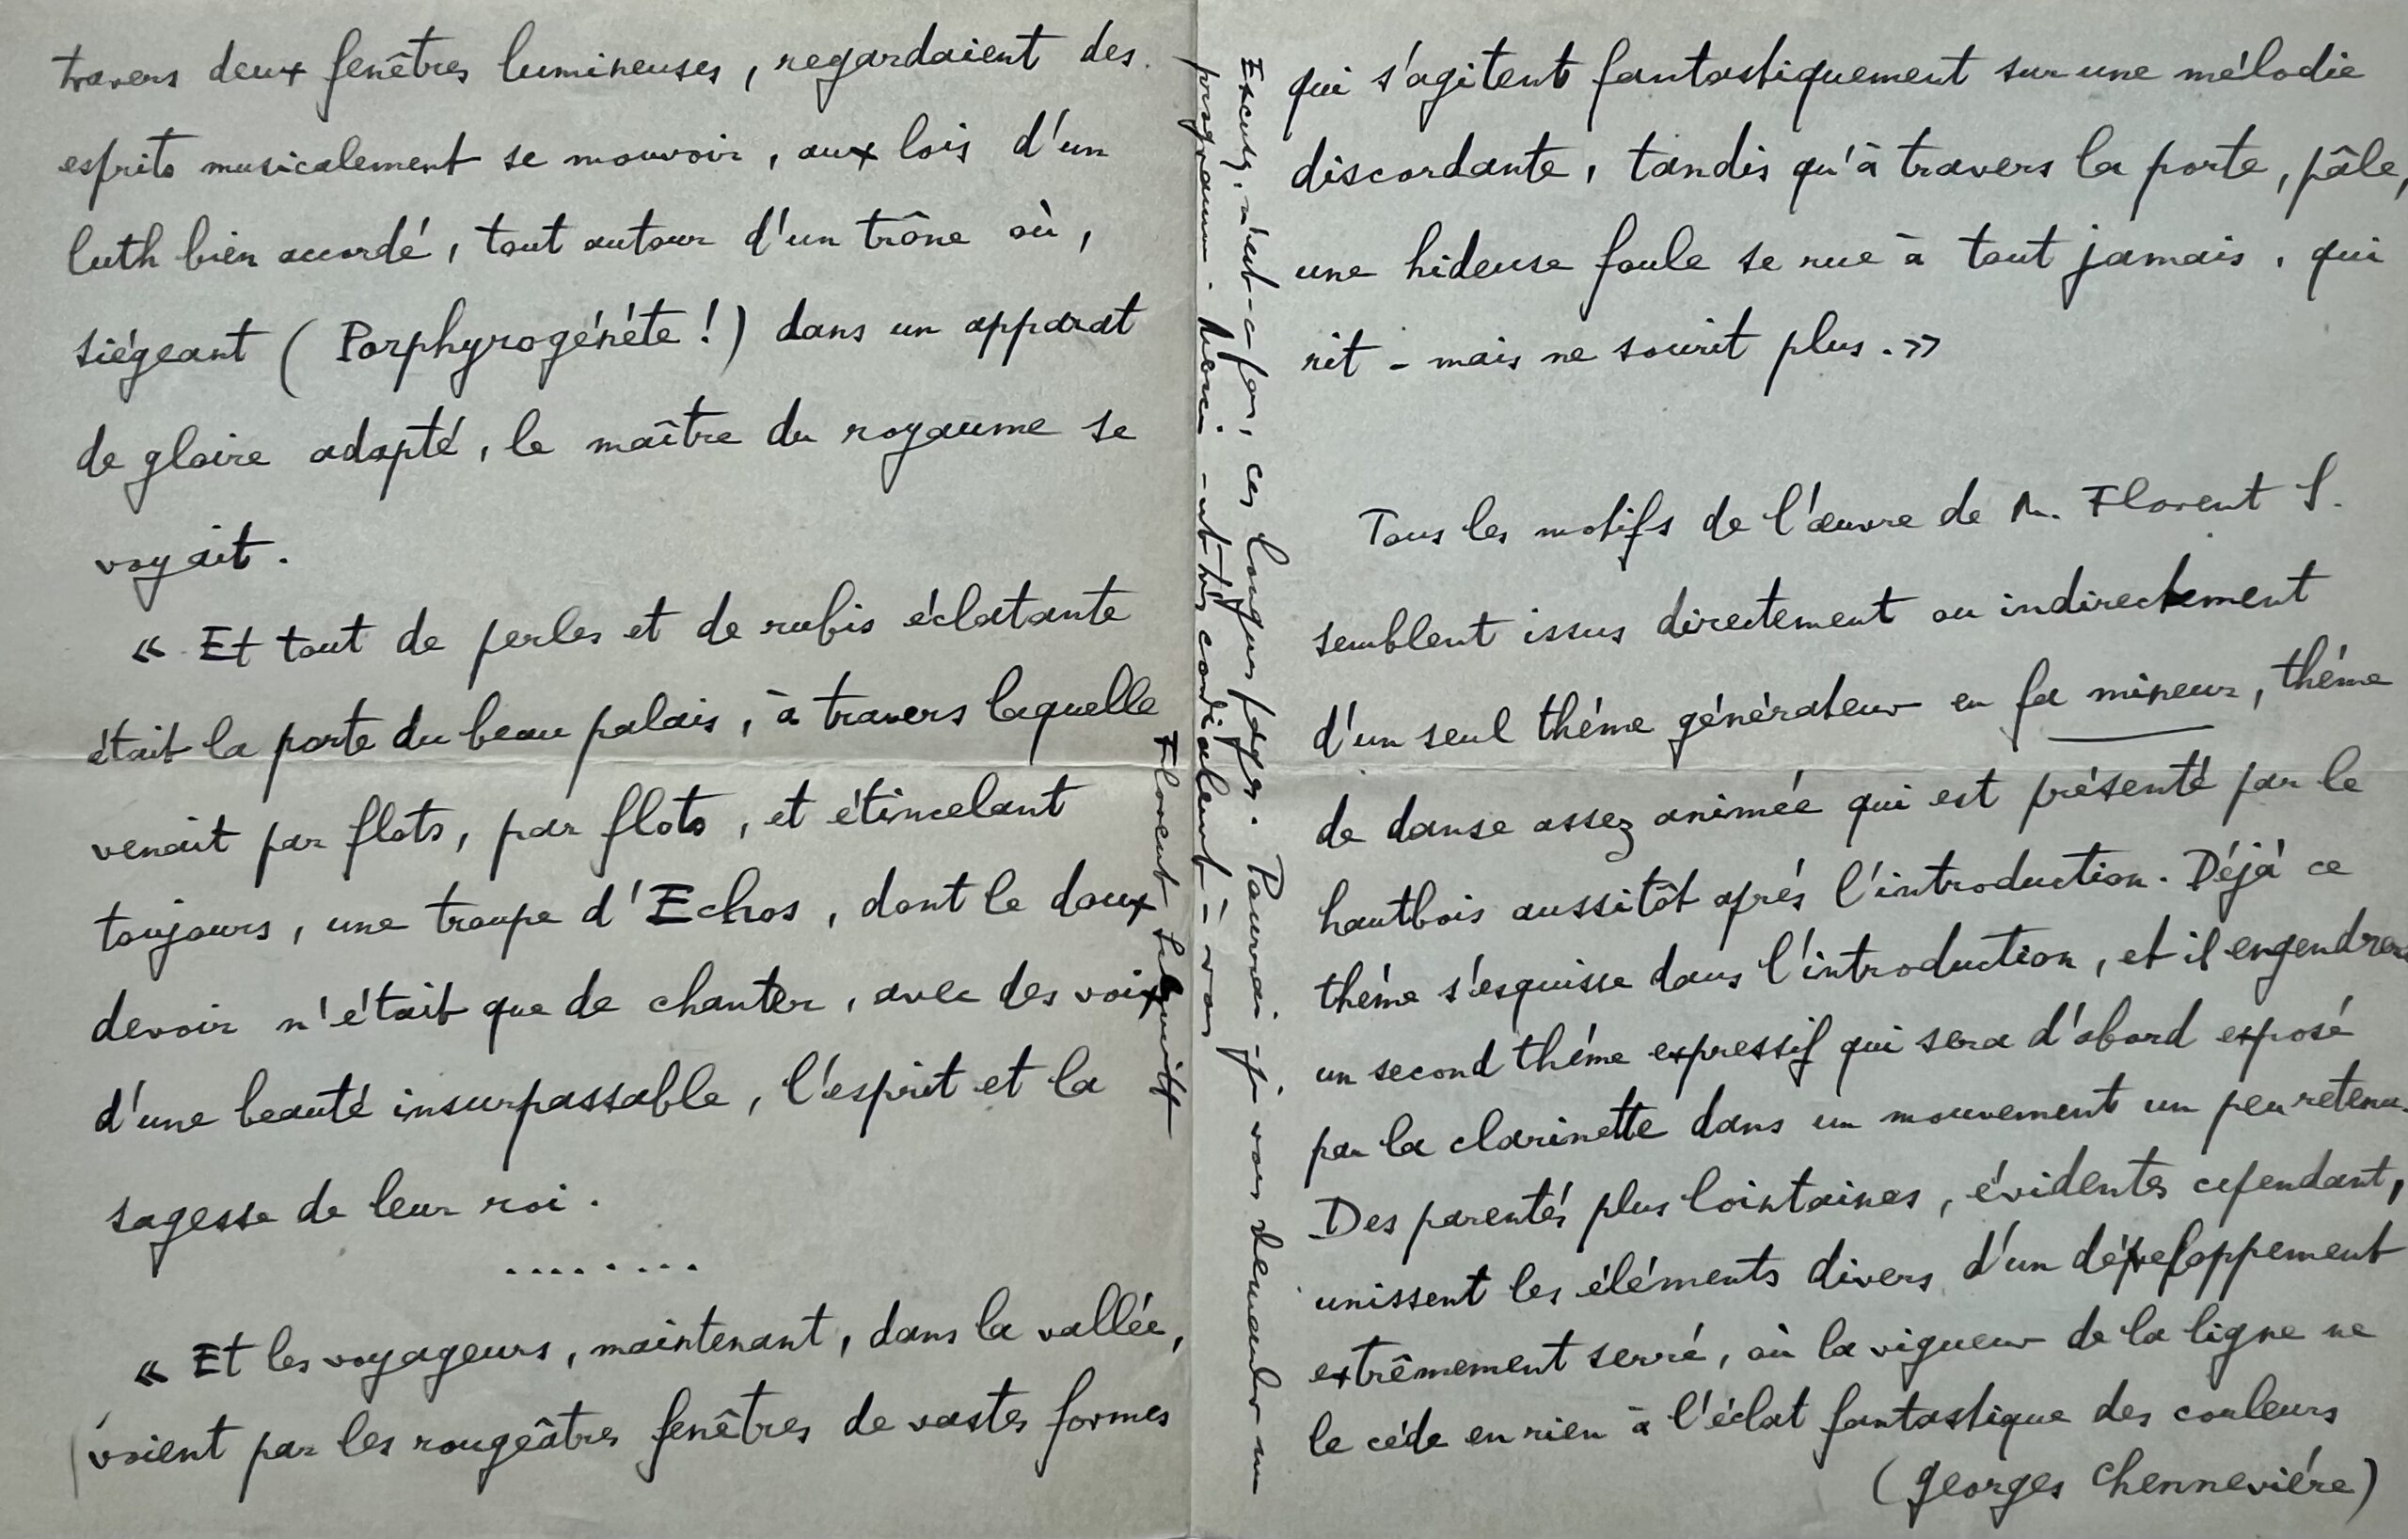 travers deux fenêtres lumineuses, regardaient des
esprits musicalement se mouvoir, aux lois d'un
luth bien accordé, tout autour d'un trône où,
siégeant (Porphyrogénète!) dans un apparat
de gloire adapté, le maître du royaume se
voyait.
« Et tout de perles et de rubis éclatante
était la porte du beau palais, à travers laquelle
venait par flots, par flots, et étincelant
toujours, une troupe d'Echos, dont le doux
devoir n'était que de chanter, avec des voix
d'une beauté insurpassable, l'esprit et la
sagesse de leur roi.
........
« Et les voyageurs, maintenant, dans la vallée,
voient par les rougeâtres fenêtres de vastes formes
qui s'agitent fantastiquement sur une mélodie
discordante, tandis qu'à travers la porte, pâle,
une hideuse foule se rue à tout jamais, qui
rit - mais ne sourit plus. »
Tous les motifs de l'œuvre de M. Florent S.
semblent issus directement ou indirectement
d'un seul thème générateur en fa mineur, thème
de danse assez animée qui est présenté par le
hautbois aussitôt après l'introduction. Déjà ce
thème s'esquisse dans l'introduction, et il engendrera
un second thème expressif qui sera d'abord exposé
par la clarinette dans un mouvement un peu retenu.
Des parentés plus lointaines, évidentes cependant,
unissent les éléments divers d'un développement
extrêmement serré, où la vigueur de la ligne ne
le cède en rien à l'éclat fantastique des couleurs
(Georges Chennevière)
Excusez, n'est-ce pas, ces longues pages. Pourrai-je vous demander un
programme. Merci - et très cordialement à vous
Florent Schmitt